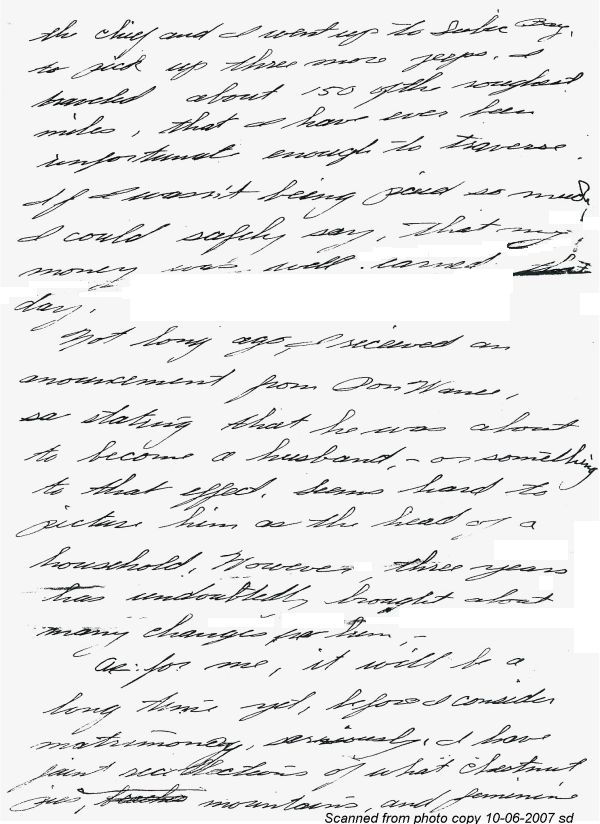 the chief and I went up to Subic Bay,
to pick up three more jeeps. I
traveled about 150 of the roughest
miles, that I have ever been
unfortunate enough to traverse.
If I wasn't being paid so much,
I could safely say, that my
money was well earned that
day.
Not long ago, I received an
anouncement from Don
so stating that he was about
to become a husband, - or something
to that effect. Seems hard to
picture him as the head of a
household. However, three years
has undoubtedly brought about
many changes for him, -
As for me, it will be a
long time yet, before I consider
matrimoney, seriously. I have
faint recollections of what Chestnut
mountains, and feminine
Scanned from photo copy 10-06-2007 sd